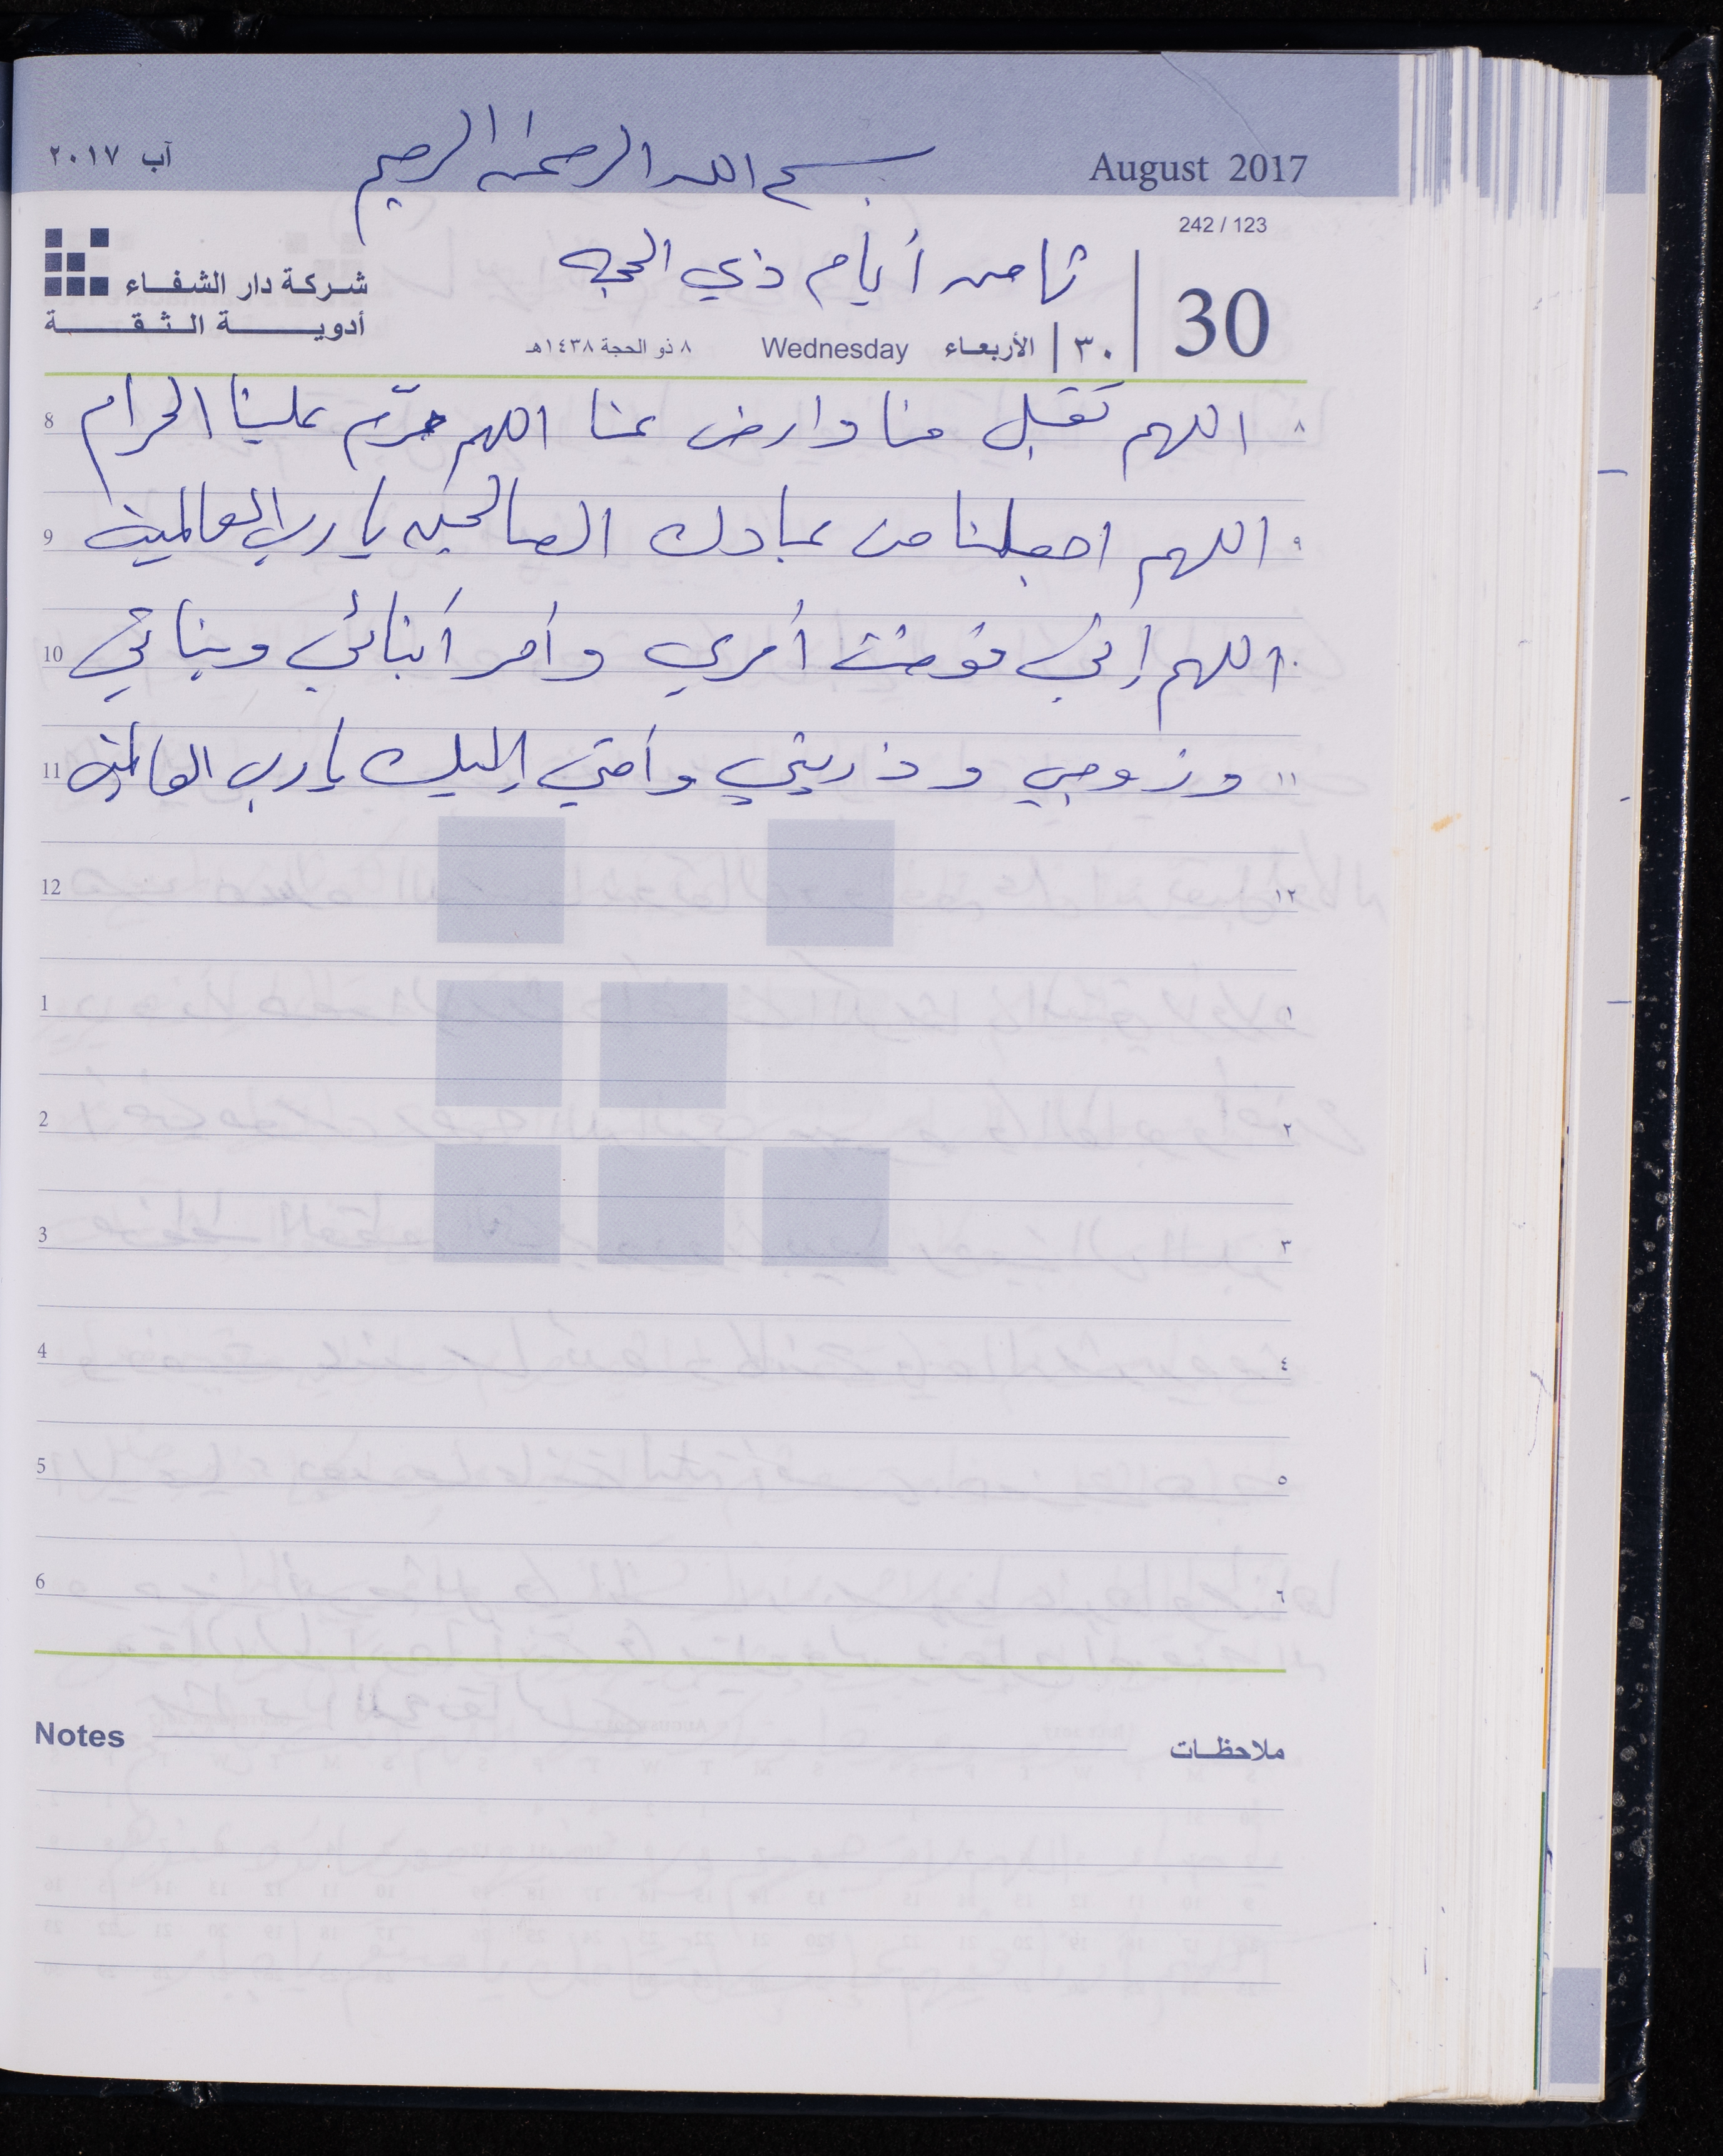 August 2017 بسم الله الرحمن الرحيم آب ٢٠١٧
242 / 123
ثامن أيام ذي الحجه
شركة دار الشفاء
أدوية الثقة
30 ٣٠ الأربعاء Wednesday ٨ ذو الحجة ١٤٣٨هـ
٨ اللهم تقبل منا وارض عنا اللهم حرّم علينا الحرام 8
٩ اللهم اجعلنا من عبادك الصالحين يا رب العالمين 9
اللهم إني فوضت أمري وأمر أبنائي وبناتي 10
١١ وزوجي وذريتي وأمتي إليك يا رب العالمين 11
١٢ 12
١ 1
٢ 2
٣ 3
٤ 4
٥ 5
٦ 6
Notes ملاحظات